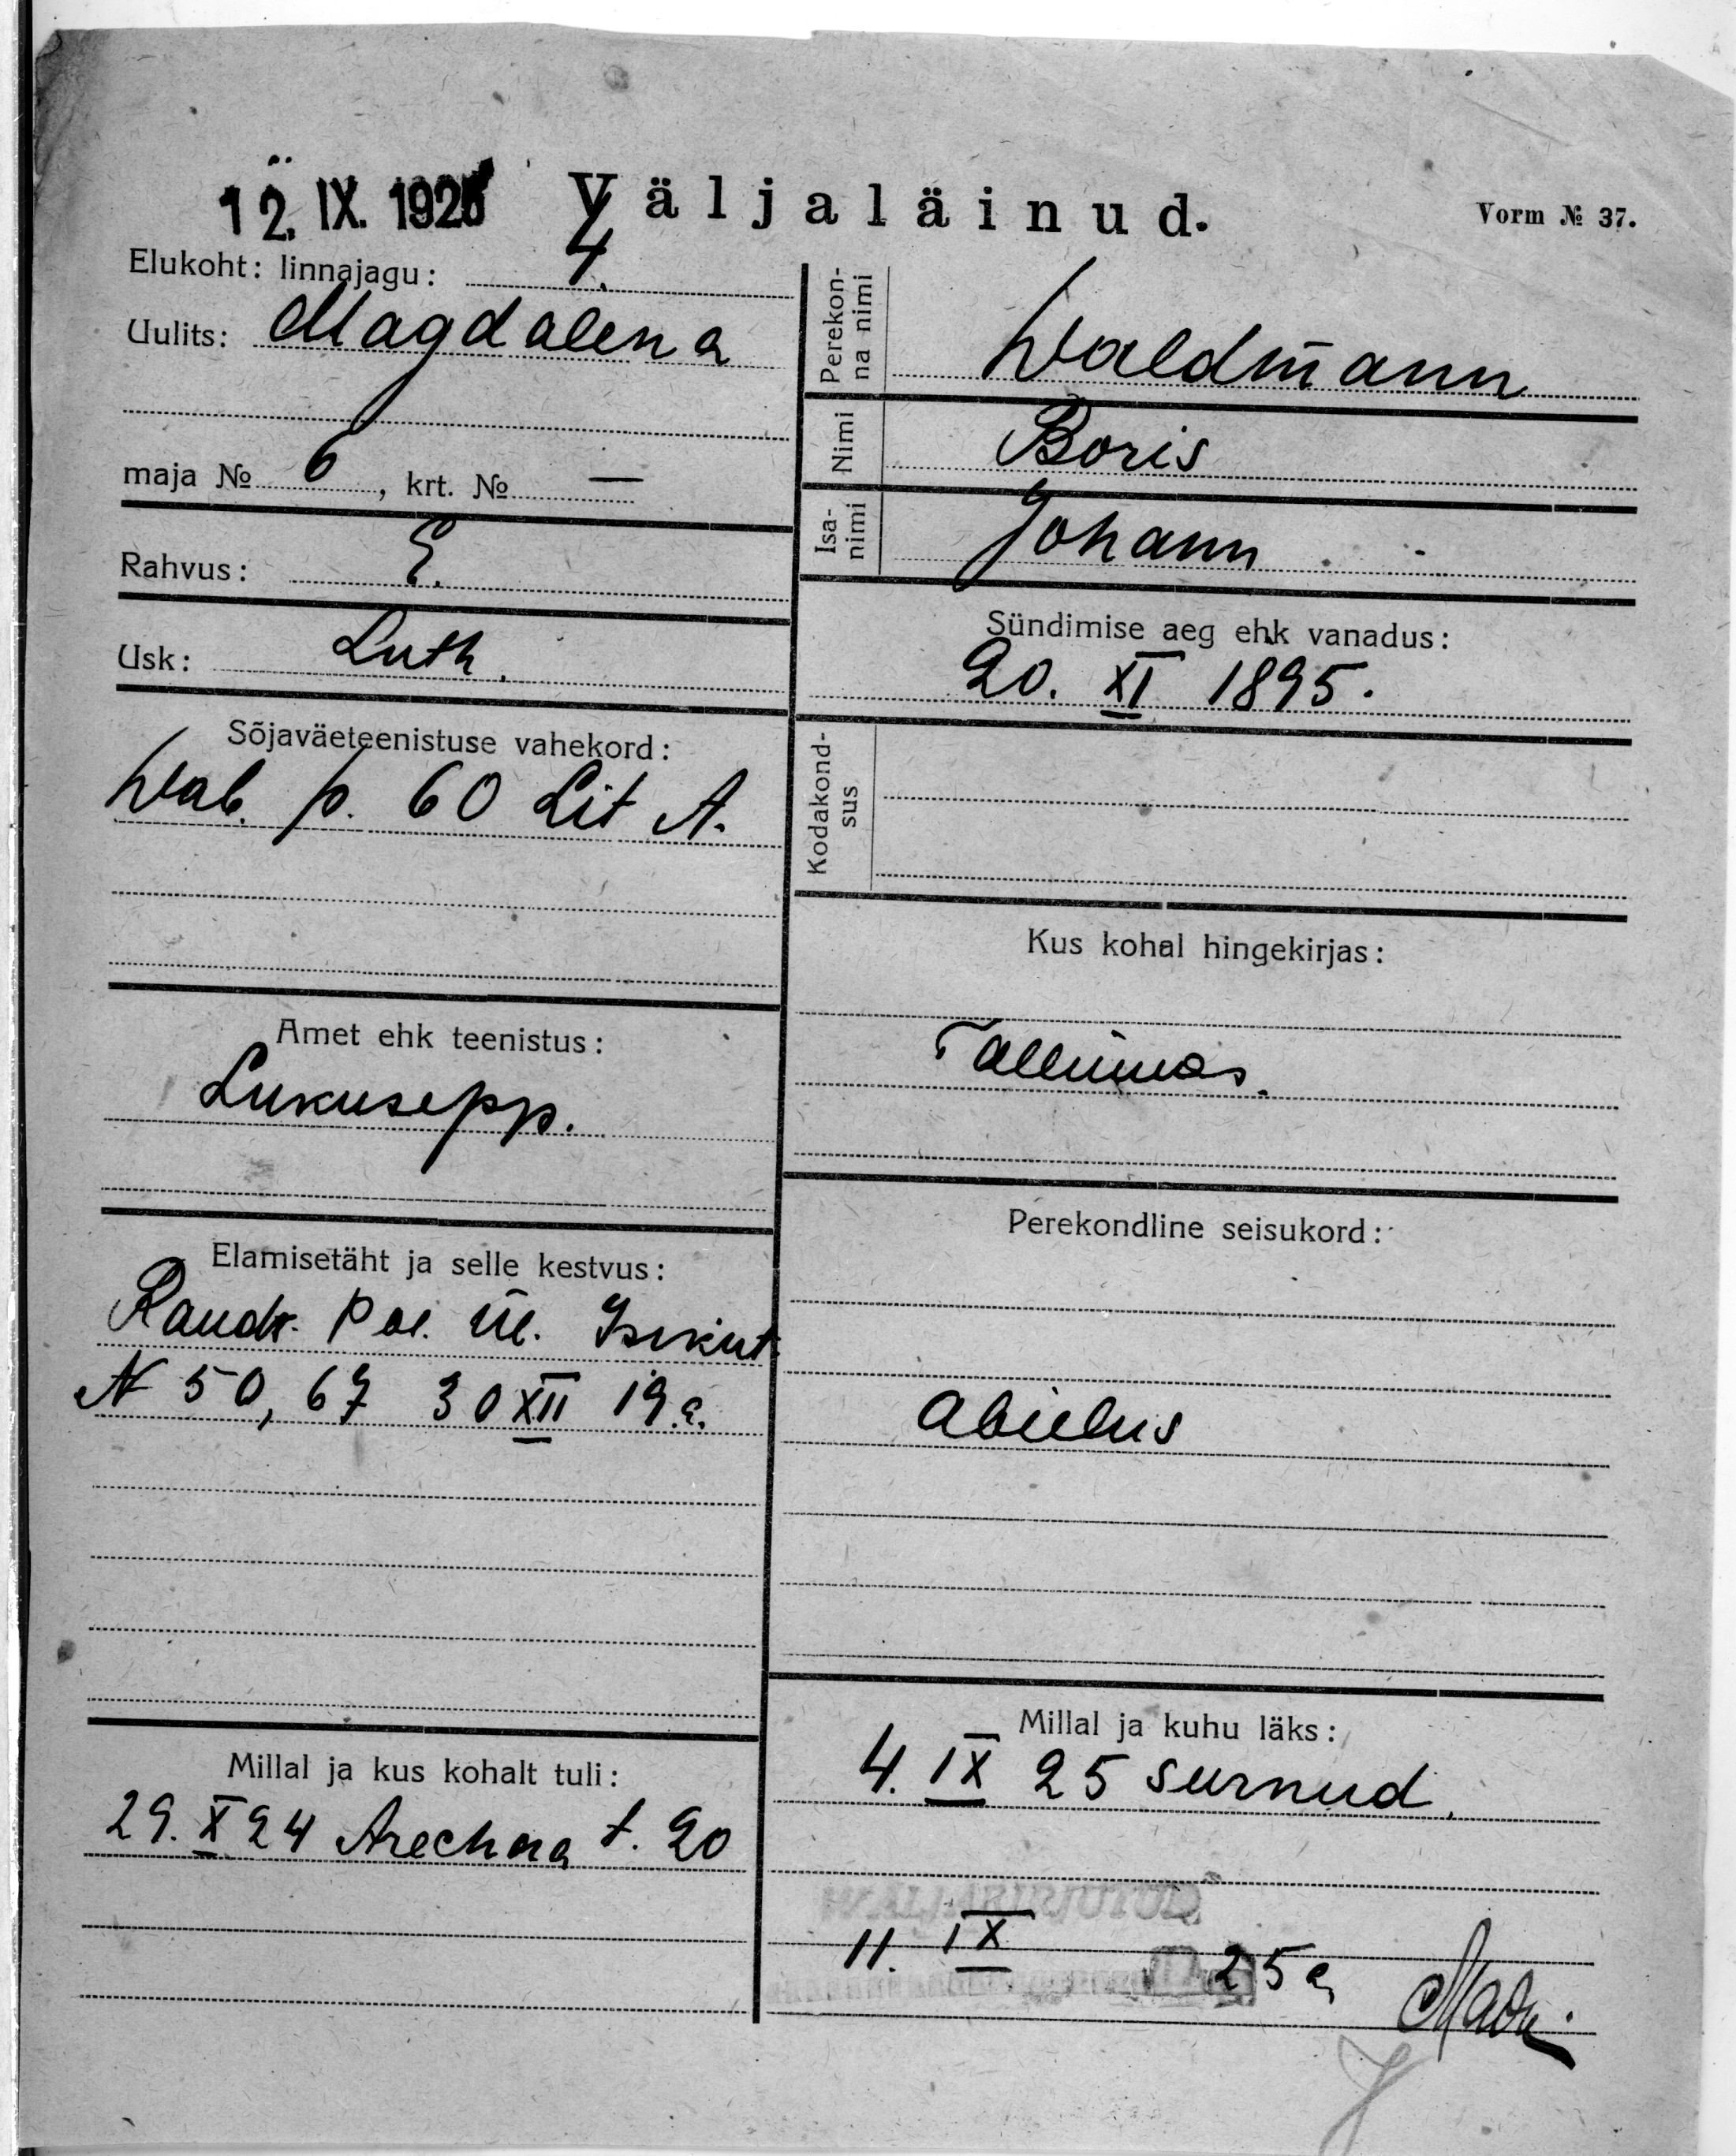 12. IX. 1925
Väljaläinud.
Vorm № 37.
Elukoht: linnajagu: 4.
Uulits: Magdalena
maja № 6, krt. № —
Rahvus: E.
Usk: Luth.
Sõjaväeteenistuse vahekord:
Wab. p. 60 Lit A.
Amet ehk teenistus:
Lukusepp.
Elamisetäht ja selle kestvus:
Raudt. Pol. Ül. Isikut.
N 50,67 30 XII 19 a.
Millal ja kus kohalt tuli:
29. X 24 t. 20
Perekon-
na nimi
Waldmann
Nimi
Boris
Isa-
nimi
Johann
Sündimise aeg ehk vanadus:
20. XI 1895.
Kodakond-
sus
Kus kohal hingekirjas:
Tallinnas.
Perekondline seisukord:
abielus
Millal ja kuhu läks:
4. IX 25 surnud.
11. IX 25 a